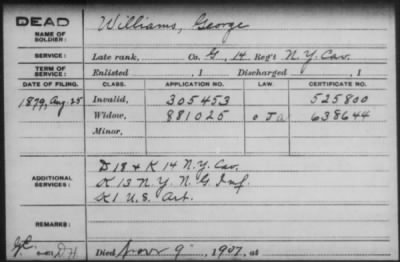 DEAD
NAME OF SOLDIER: Williams, George
SERVICE: Late rank, Co. G, 14 Reg't N.Y. Cav.
TERM OF SERVICE: Enlisted , 1 Discharged , 1
DATE OF FILING. CLASS. APPLICATION NO. LAW. CERTIFICATE NO.
1879, Aug. 25 Invalid, 305453 525800
Widow, 881025 638644
Minor,
ADDITIONAL SERVICES:
D 18 & K 14 N.Y. Cav.
K 13 N.Y. N G Inf.
K 1 U.S. Art.
REMARKS:
Died Nov 9, 1907, at